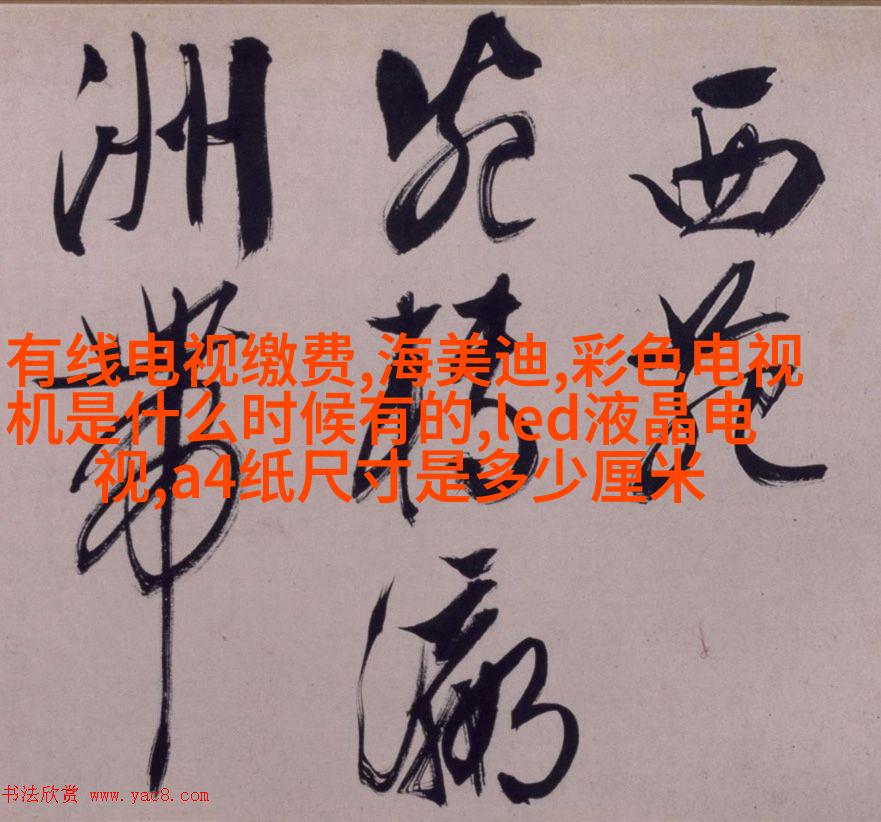 西苑
瀛
洲帶
有线电视缴费,海美迪,彩色电视
机是什么时候有的,led液晶电
视,a4纸尺寸是多少厘米
书法欣赏 www.yac8.com